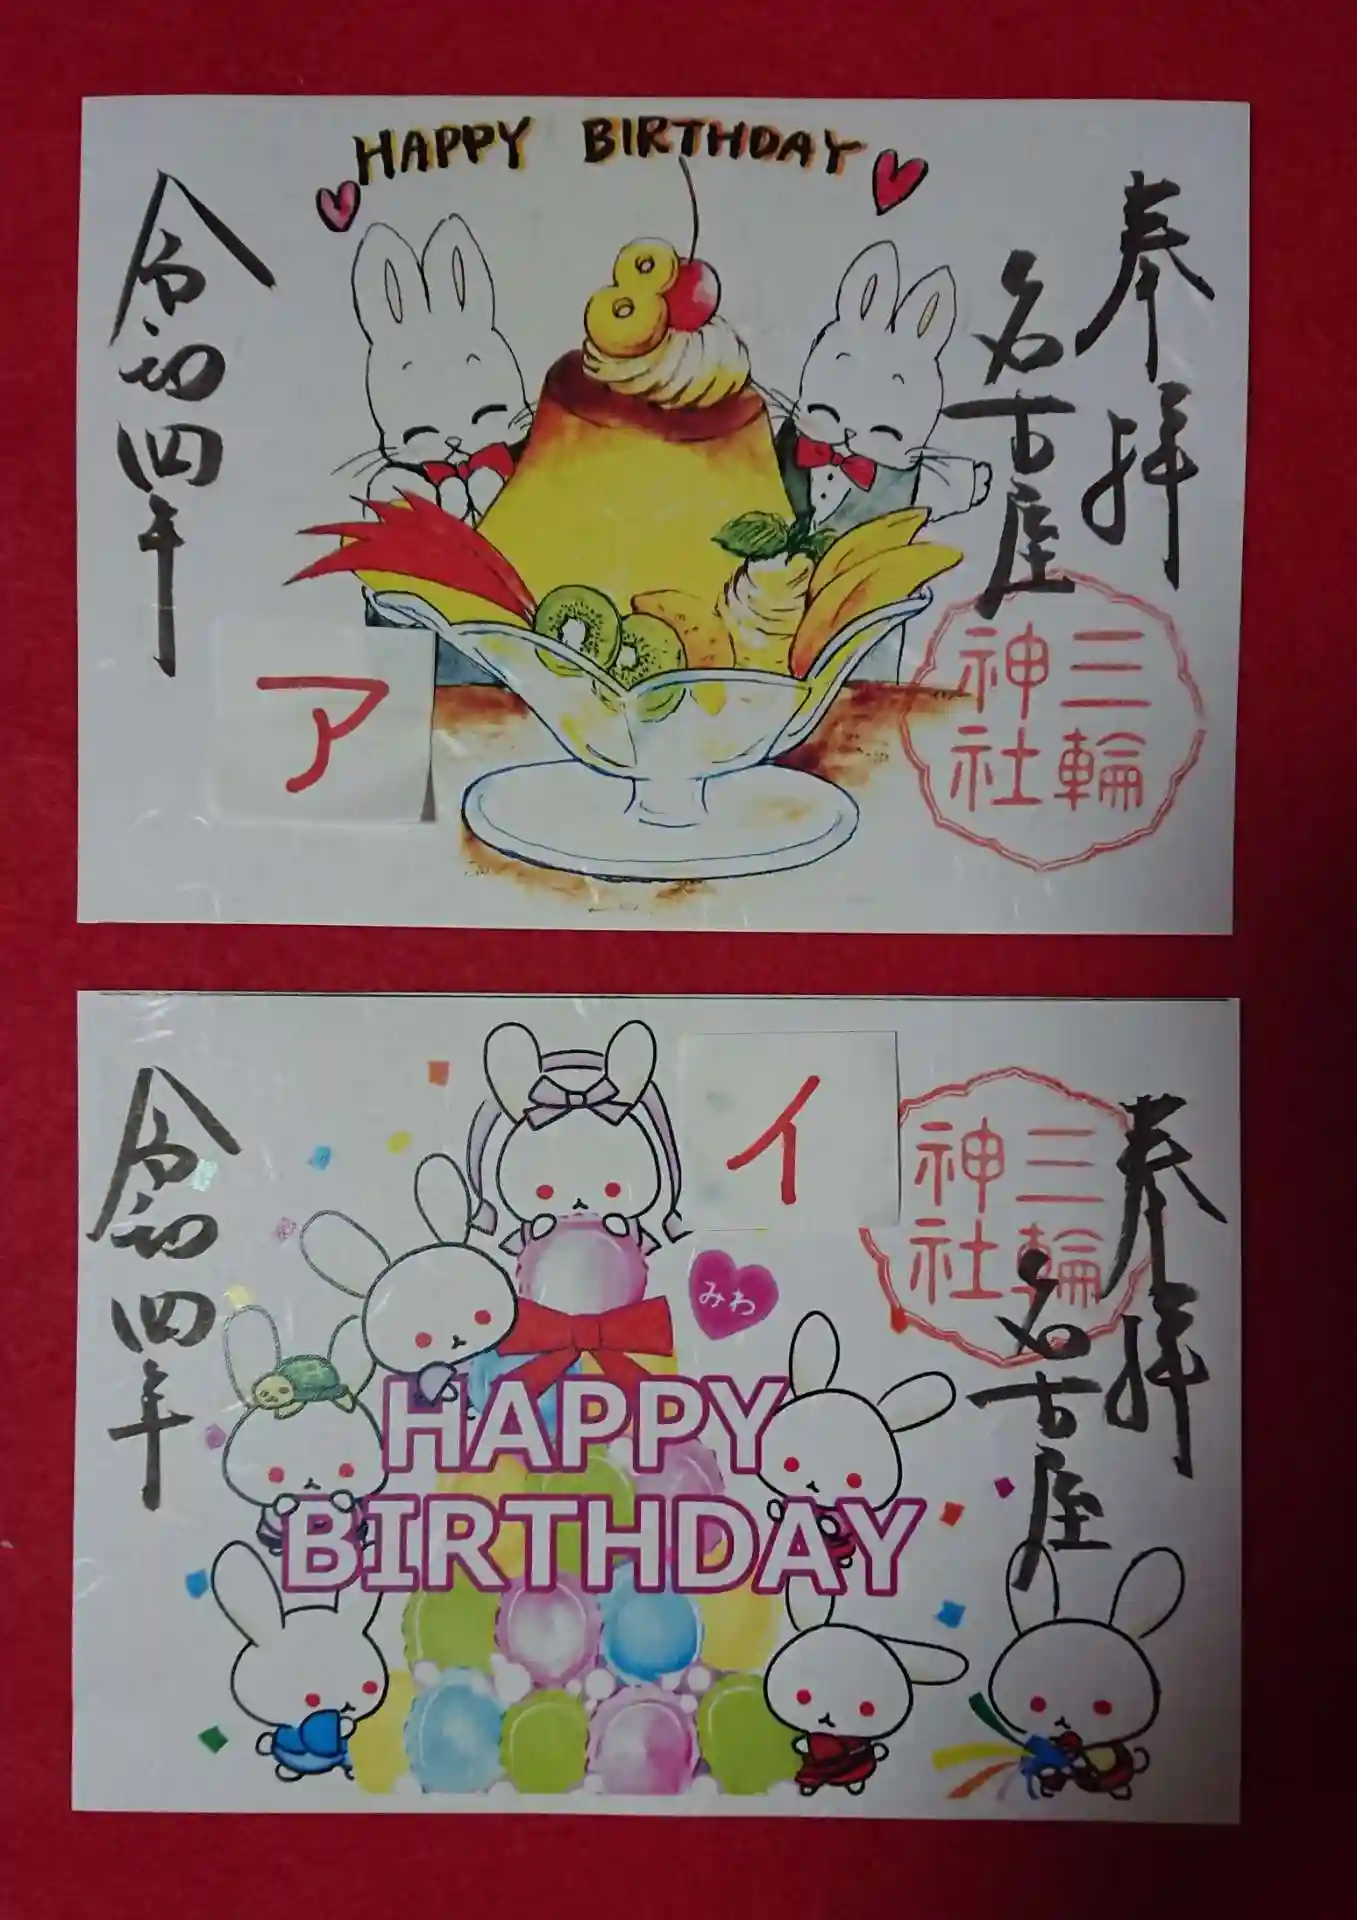 HAPPY BIRTHDAY
奉拝
名古屋
三輪
神社
令和四年
ア
奉拝
名古屋
三輪
神社
イ
みわ
HAPPY
BIRTHDAY
令和四年